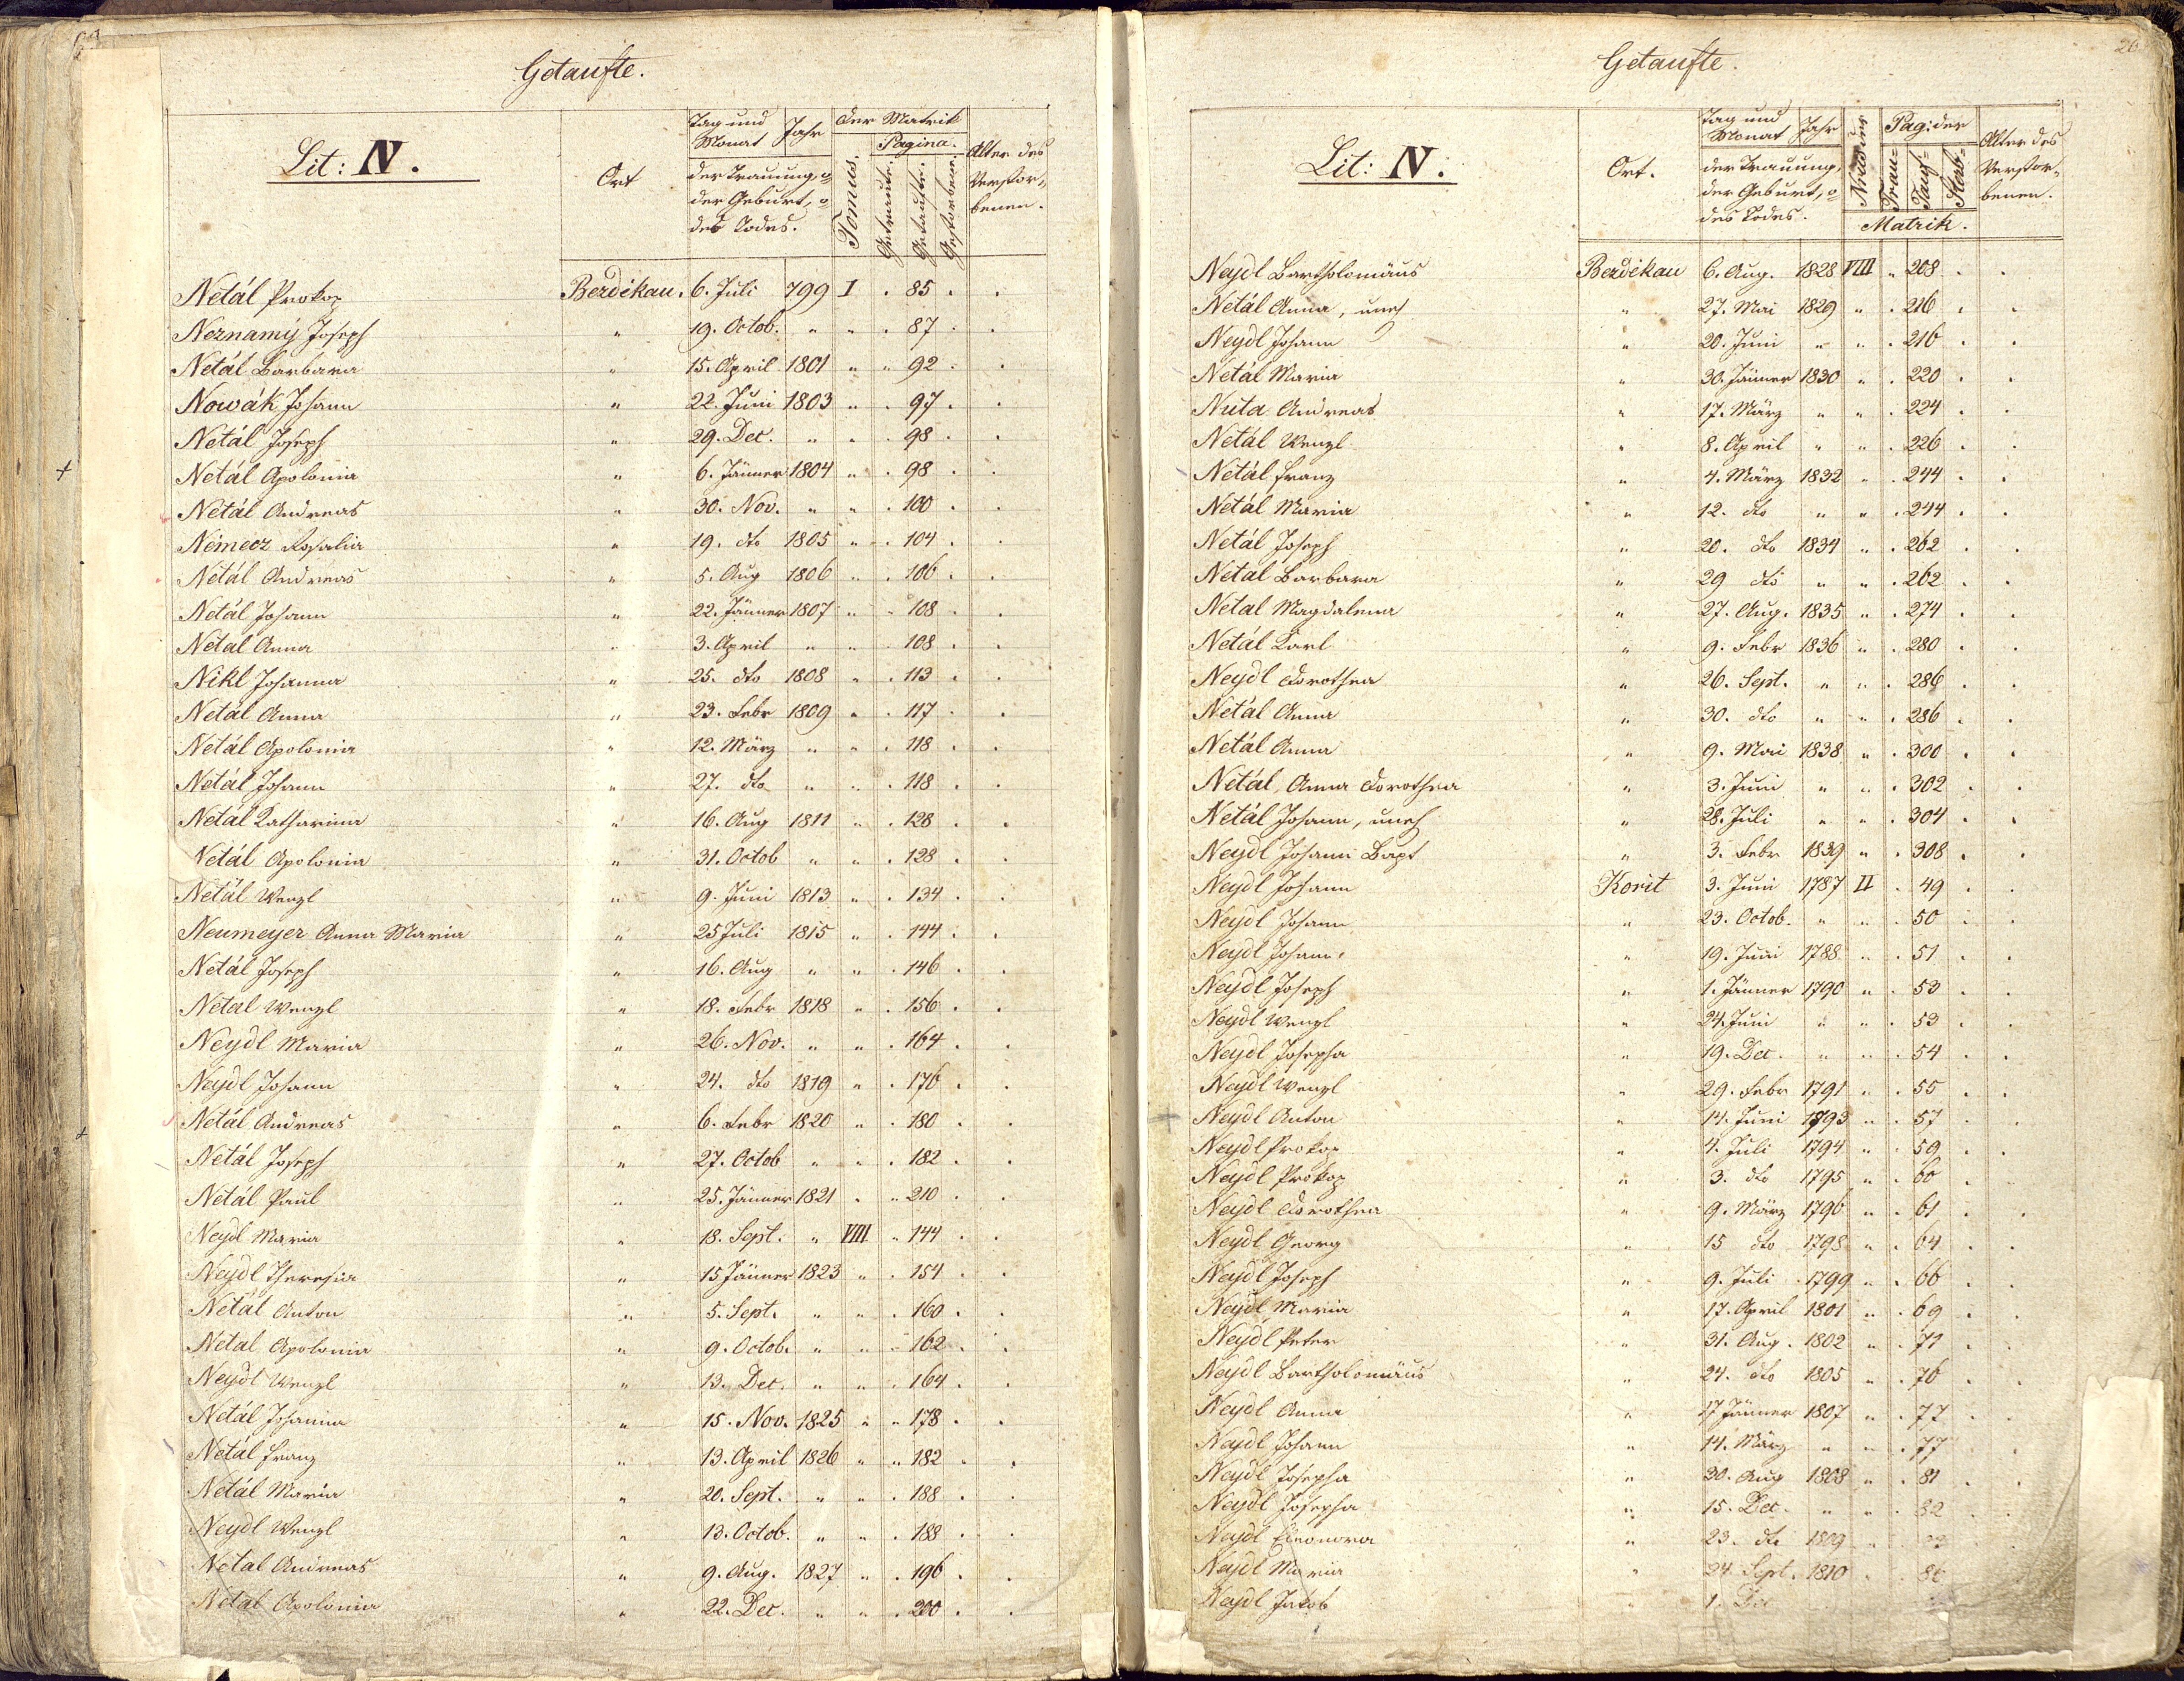 Getaufte.
Lit: N.
Ort
Tag und Monat
Jahr
der Trauung, o
der Geburt, o
des Todes.
Der Matrik
Tomus.
Pagina.
Getraute.
Getaufte.
Gestorbene.
Alter des
Verstor-
benen.
Netál Prokop Berdikau. 6. Juli 799 I . 85 . .
Neznamý Joseph " 19. Octob. " " . 87 . .
Netál Barbara " 15. April 1801 " " 92 . .
Nowák Johann " 22. Juni 1803 " . 97 . .
Netál Joseph " 29. Dec. " " . 98 . .
Netál Apolonia " 6. Jänner 1804 " . 98 . .
Netál Andreas " 30. Nov. " " . 100 . .
Némecz Rosalia " 19. dto 1805 " . 104 . .
Netál Andreas " 5. Aug 1806 " . 106 . .
Netál Johann " 22. Jänner 1807 " . 108 . .
Netal Anna " 3. April " " . 108 . .
Nikl Johanna " 25. dto 1808 " . 113 . .
Netál Anna " 23. Febr 1809 " . 117 . .
Netál Apolonia " 12. März " " . 118 . .
Netál Johann " 27. dto " " . 118 . .
Netál Katharina " 16. Aug 1811 " . 128 . .
Netál Apolonia " 31. Octob " " . 128 . .
Netál Wenzl " 9. Juni 1813 " . 134 . .
Neumeyer Anna Maria " 25 Juli 1815 " . 144 . .
Netál Joseph " 16. Aug " " . 146 . .
Netal Wenzl " 18. Febr 1818 " . 156 . .
Neydl Maria " 26. Nov. " " . 164 . .
Neydl Johann " 24. dto 1819 " . 176 . .
Netál Andreas " 6. Febr 1820 " . 180 . .
Netál Joseph " 27. Octob " " . 182 . .
Netál Paul " 25. Jänner 1821 " " 210 . .
Neydl Maria " 18. Sept. " VIII " 144 . .
Neydl Theresia " 15 Jänner 1823 " . 154 . .
Netál Anton " 5. Sept. " " . 160 . .
Netal Apolonia " 9. Octob. " " " 162 . .
Neydl Wenzl " 13. Dec. " " . 164 . .
Netál Johanna " 15. Nov. 1825 " " 178 . .
Netál Franz " 13. April 1826 " " 182 . .
Netál Maria " 20. Sept. " " . 188 . .
Neydl Wenzl " 13. Octob. " " . 188 . .
Netal Andreas " 9. Aug. 1827 " . 196 . .
Netal Apolonia " 22. Dec. " " . 200 . .
26
Getaufte.
Lit: N.
Ort.
Tag und Monat
Jahr
der Trauung,
der Geburt, o
des Todes.
Nro der
Pag: der
Trau-
Tauf-
Sterb-
Matrik.
Alter des
Verstor-
benen.
Neydl Bartholomäus Berdikau 6. Aug. 1828 VIII " 208 . .
Netál Anna, uneh " 27. Mai 1829 " . 216 . .
Neydl Johann " 20. Juni " " . 216 . .
Netál Maria " 30. Jänner 1830 " . 220 . .
Nuta Andreas " 17. März " " . 224 . .
Netál Wenzl " 8. April " " . 226 . .
Netál Franz " 4. März 1832 " . 244 . .
Netál Maria " 12. dto " " . 244 . .
Netál Joseph " 20. dto 1834 " . 262 . .
Netal Barbara " 29 dto " " . 262 . .
Netal Magdalena " 27. Aug. 1835 " . 274 . .
Netál Karl " 9. Febr 1836 " . 280 . .
Neydl Dorothea " 26. Sept. " " . 286 . .
Netál Anna " 30. dto " " . 286 . .
Netál Anna " 9. Mai 1838 " . 300 . .
Netál, Anna Dorothea " 3. Juni " " . 302 . .
Netál Johann, uneh " 28. Juli " " . 304 . .
Neydl Johann Bapt " 3. Febr 1839 " . 308 . .
Neydl Johann Korit 3. Juni 1787 II . 49 . .
Neydl Johann " 23. Octob. " " . 50 . .
Neydl Johann " 19. Juni 1788 " . 51 . .
Neydl Joseph " 1. Jänner 1790 " . 53 . .
Neydl Wenzl " 24. Juni " " . 53 . .
Neydl Josepha " 19. Dec. " " . 54 . .
Neydl Wenzl " 29. Febr 1791 " . 55 . .
Neydl Anton " 14. Juni 1793 " . 57 . .
Neydl Prokop " 4. Juli 1794 " . 59 . .
Neydl Prokop " 3. dto 1795 " . 60 . .
Neydl Dorothea " 9. März 1796 " . 61 . .
Neydl Georg " 15 dto 1798 " . 64 . .
Neydl Joseph " 9. Juli 1799 " . 66 . .
Neydl Maria " 17. April 1801 " . 69 . .
Neydl Peter " 31. Aug. 1802 " . 71 . .
Neydl Bartholomäus " 24. dto 1805 " . 76 . .
Neydl Anna " 17 Jänner 1807 " . 77 . .
Neydl Johann " 14. März " " . 77 . .
Neydl Josepha " 30. Aug 1808 " . 81 . .
Neydl Josepha " 15. Dec. " " . 82 . .
Neydl Eleonora " 23. dto 1809 "
Neydl Maria " 24. Sept. 1810 " . 86
Neydl Jakob " 1. Dec